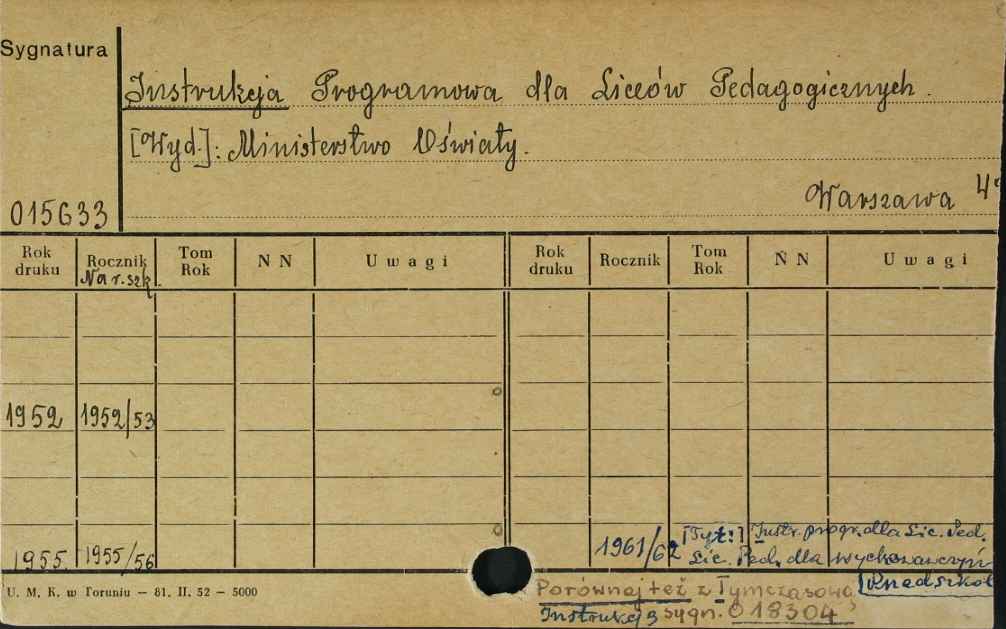 Sygnatura
Instrukcja Programowa dla Liceów Pedagogicznych.
[Wyd.]: Ministerstwo Oświaty.
Warszawa 4°
015633
Rok druku Rocznik Tom Rok N N Uwagi Rok druku Rocznik Tom Rok N N Uwagi
Na r. szk.
1952 1952/53
1955 1955/56
1961/62 [Tyt:] Instr. progr. dla Lic. Ped.
Lic. Ped. dla Wychowawczyń
Przedszkol
U. M. K. w Toruniu — 81. II. 52 — 5000
Porównaj też z Tymczasową
Instrukcją sygn. 018304